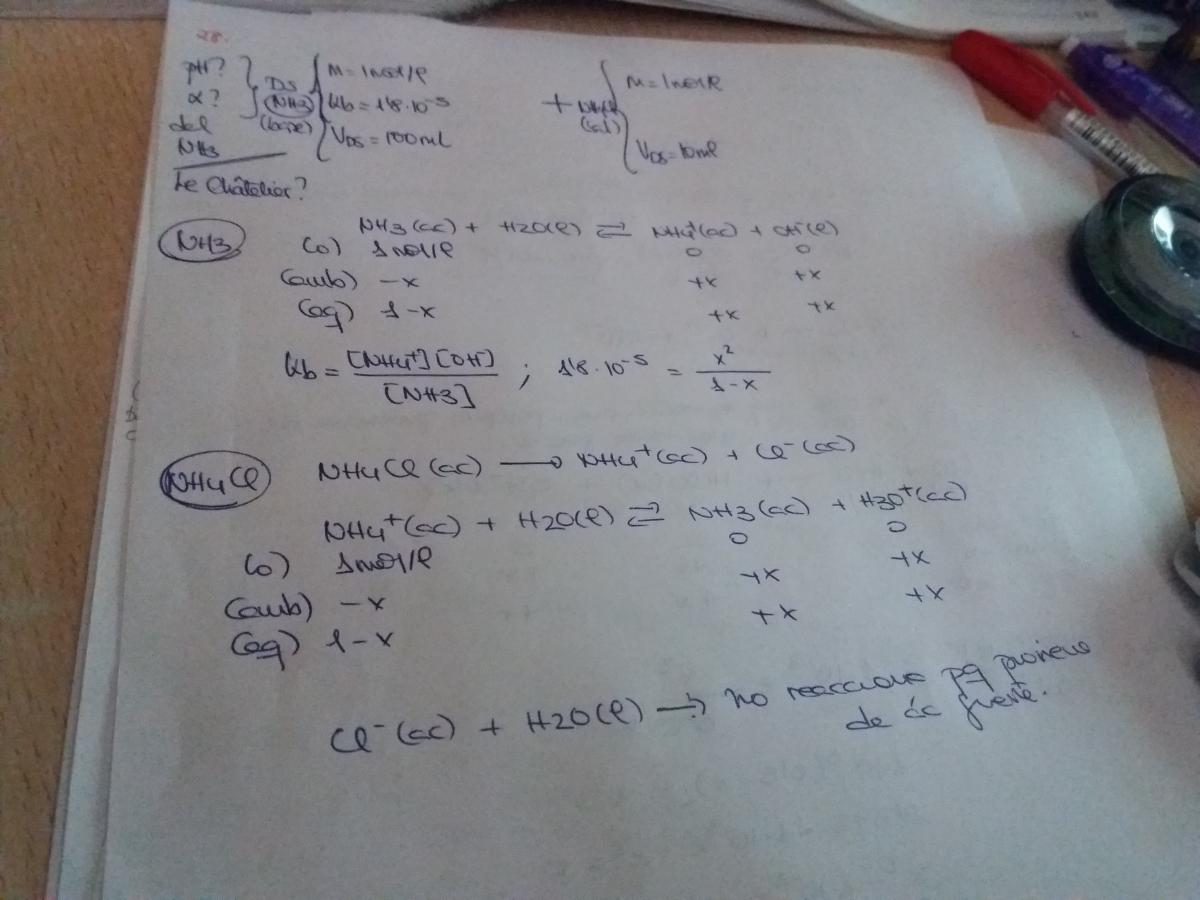 28.
pH? Ds M = 1mol/l + NH4Cl M = 1mol/l
α? (NH3) Kb = 1'8·10⁻⁵ (sal)
del (base) VDS = 100ml VDS = 10ml
NH3
Le Châtelier?
NH3 NH3(ac) + H2O(l) ⇌ NH4⁺(ac) + OH⁻(l)
Co) 1mol/l 0 0
(camb) -x +x +x
(eq) 1-x +x +x
Kb = [NH4⁺][OH⁻] / [NH3] ; 1'8·10⁻⁵ = x² / 1-x
NH4Cl NH4Cl(ac) ⟶ NH4⁺(ac) + Cl⁻(ac)
NH4⁺(ac) + H2O(l) ⇌ NH3(ac) + H3O⁺(ac)
Co) 1mol/l 0 0
(camb) -x +x +x
(eq) 1-x +x +x
Cl⁻(ac) + H2O(l) ⟶ no reacciona pq proviene
de ác fuerte.